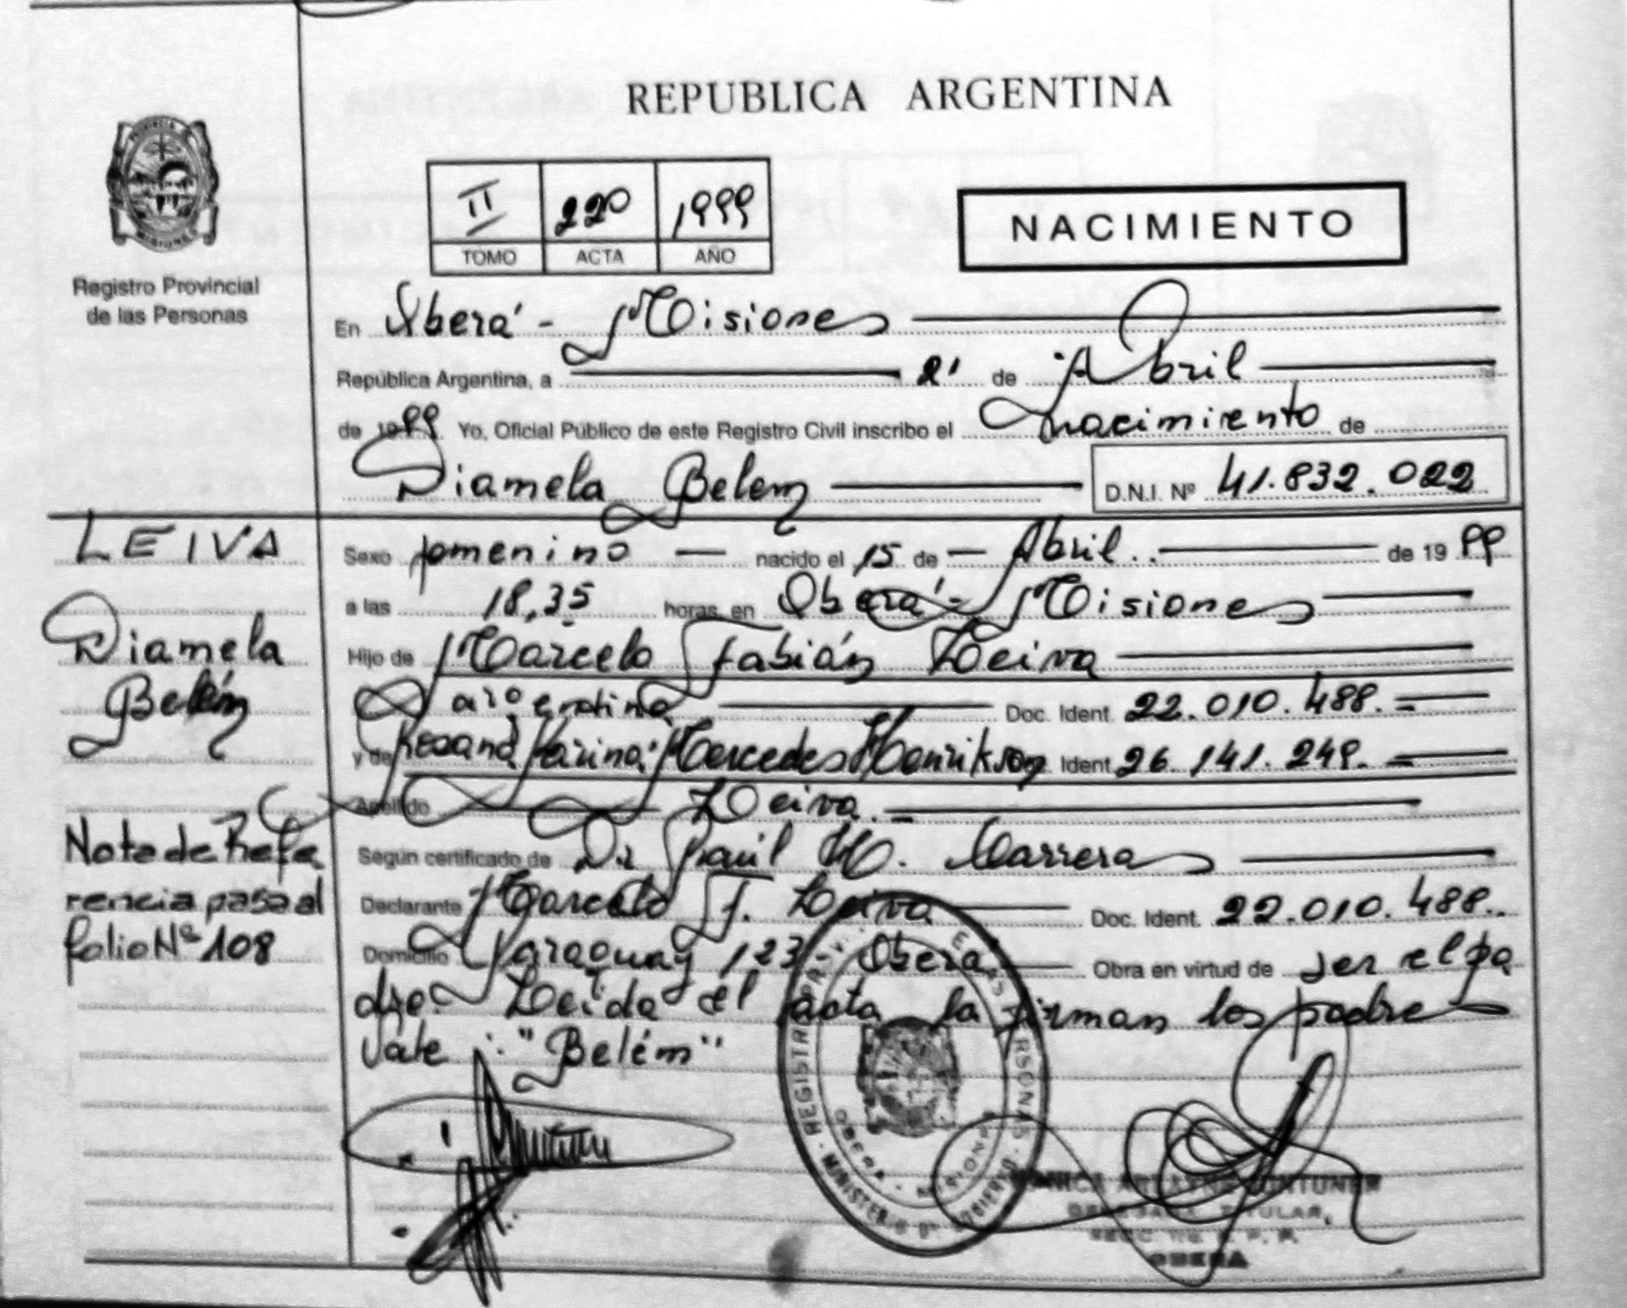 REPUBLICA ARGENTINA
Registro Provincial
de las Personas
II 220 1999
TOMO ACTA AÑO
NACIMIENTO
En Oberá - Misiones
República Argentina, a 21 de Abril
de 1999 Yo, Oficial Público de este Registro Civil inscribo el nacimiento de
Diamela Belem D.N.I. Nº 41.832.022
LEIVA
Diamela
Belén
Nota de Refe
rencia pasa al
folio Nº 108
Sexo femenino nacido el 15 de Abril. de 19 99
a las 18,35 horas, en Oberá - Misiones
Hijo de Marcelo Fabián Leiva
argentina Doc. Ident. 22.010.488.=
y de Karina Mercedes Henrikson Ident 26.141.249.=
Apellido Leiva.
Según certificado de Dr Raúl W. Carreras
Declarante Marcelo F. Leiva Doc. Ident. 22.010.488.
Domicilio Paraguay 123 - Oberá Obra en virtud de ser el pa
dre. Leída el acta la firman los padre
Vale: "Belém"
REGISTRO PROV. DE LAS PERSONAS
OBERA - MISIONES
MINISTERIO DE GOBIERNO
TITULAR,
OBERA